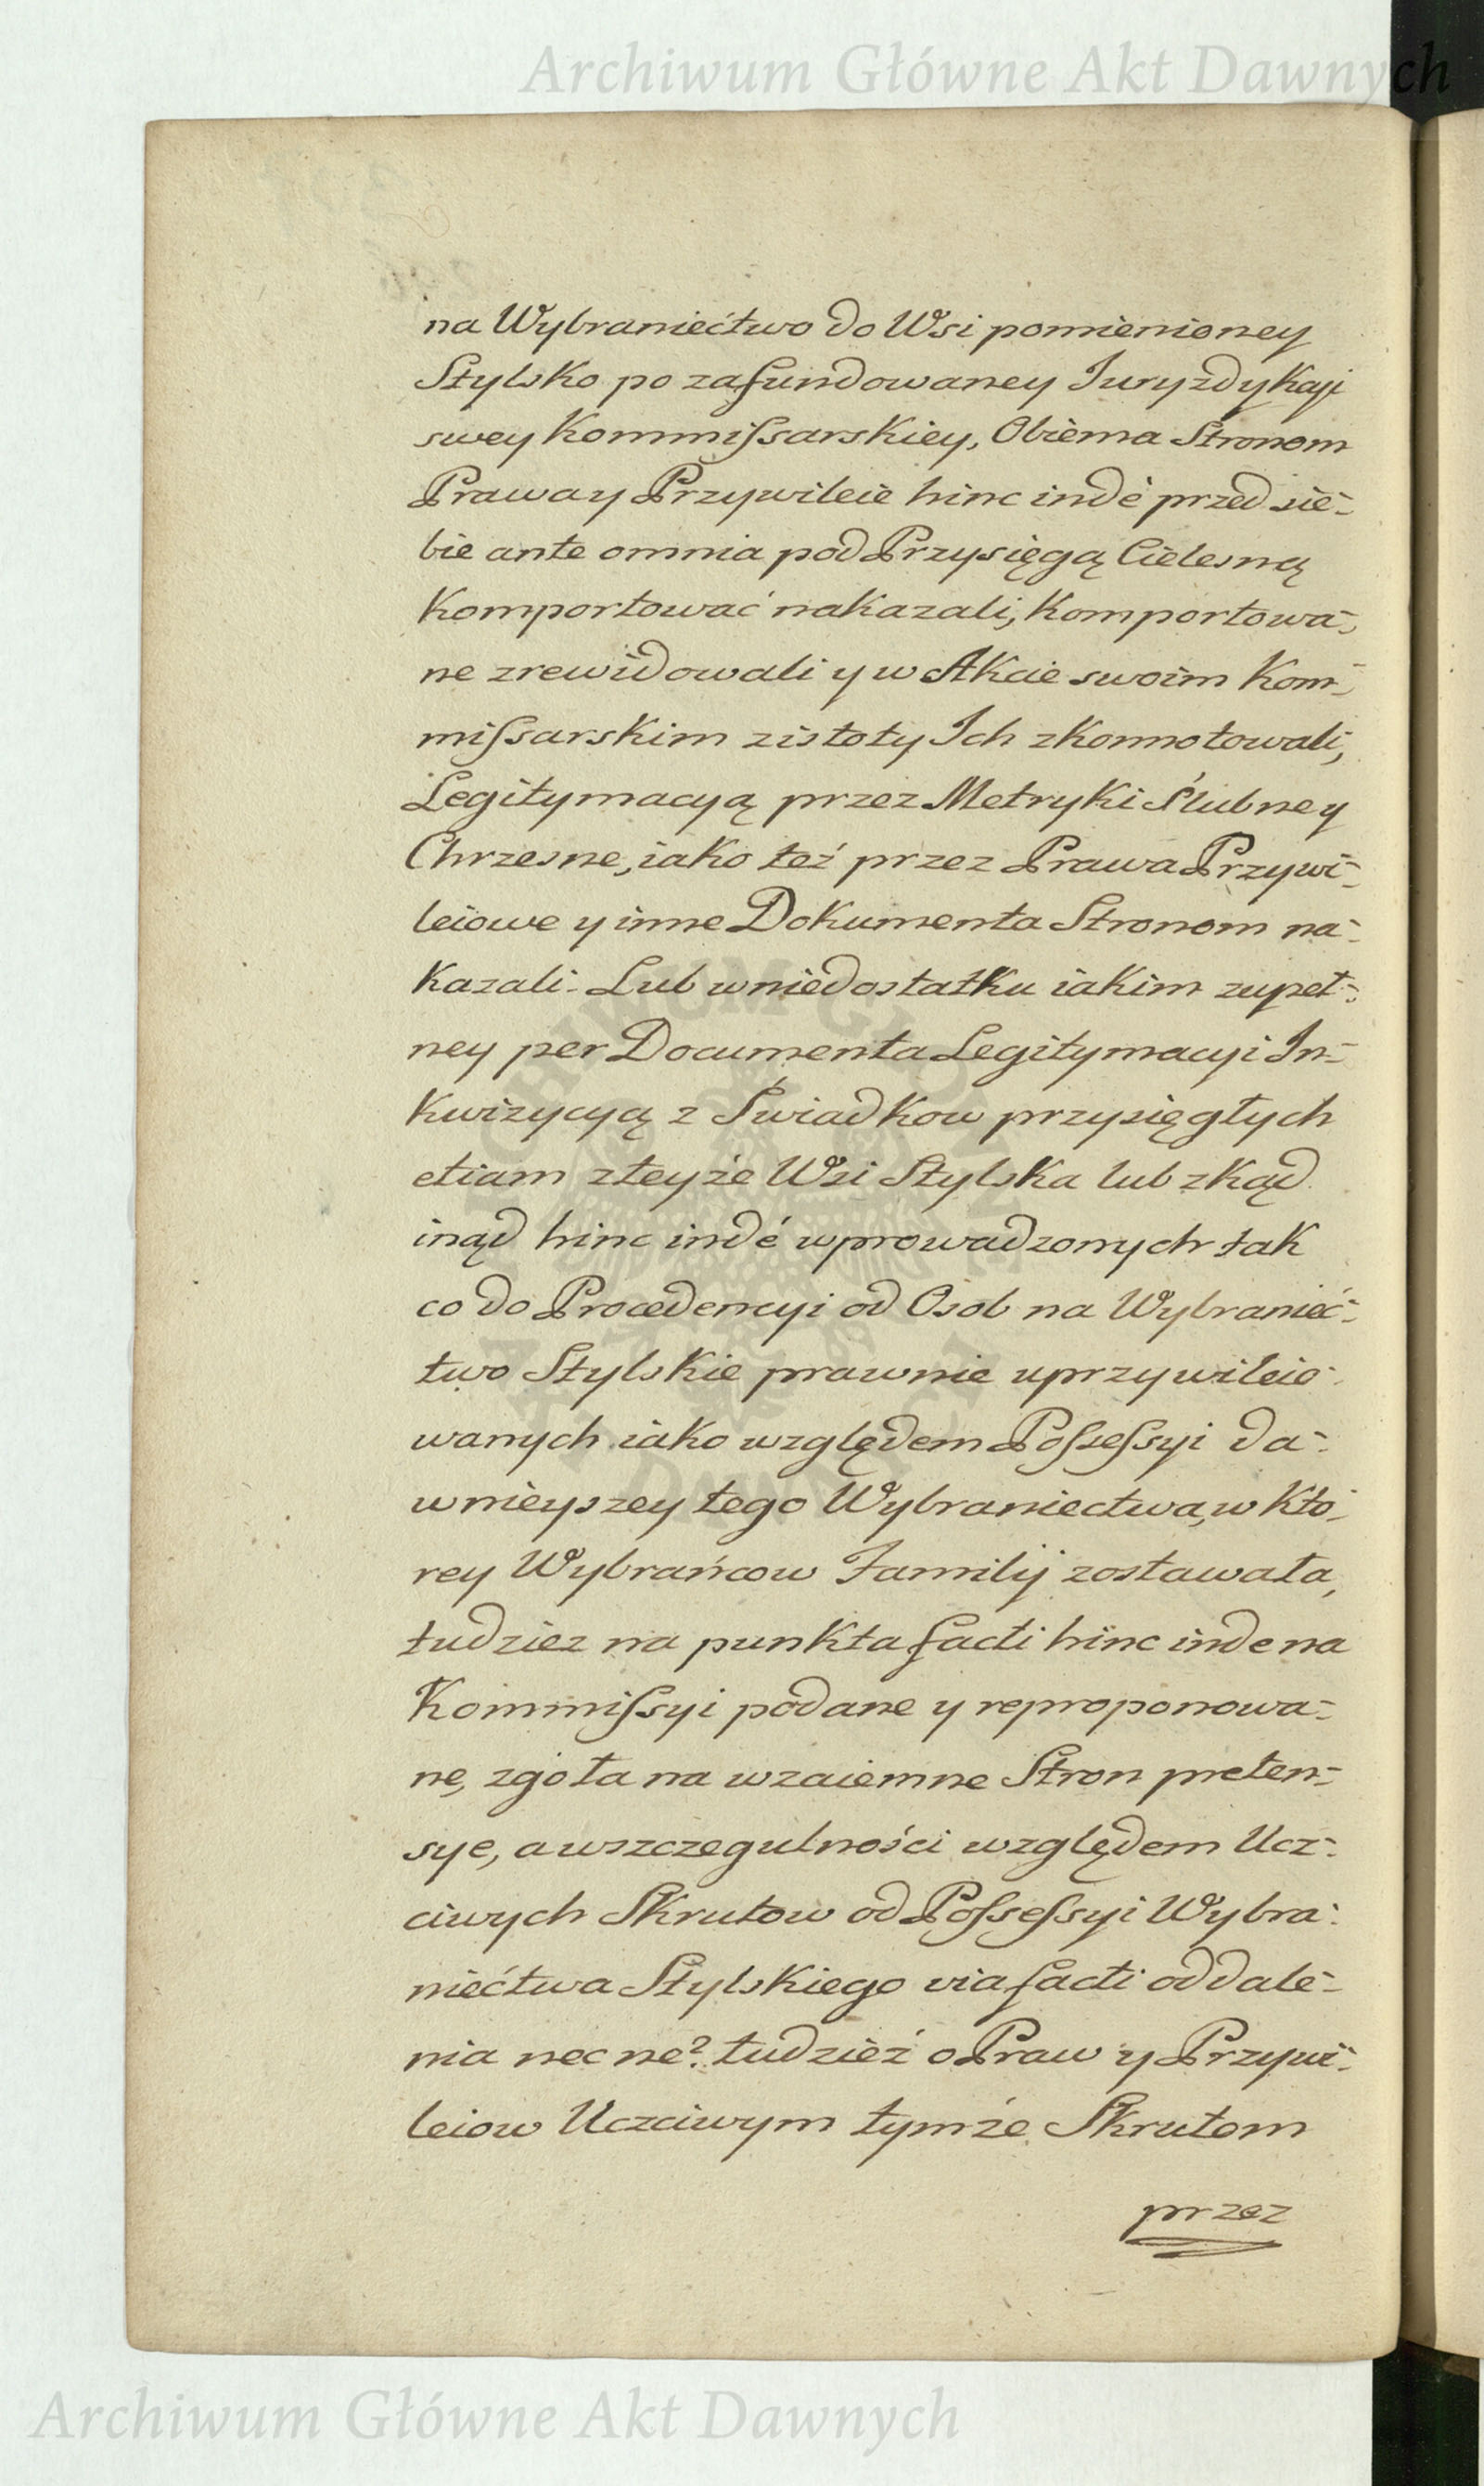 Archiwum Główne Akt Dawnych
na Wybraniećtwo do Wsi pomienioney
Stylsko po zafundowaney Juryzdykcyi
swey Kommissarskiey, Obiema Stronom
Prawa y Przywileie hinc indè przed sie-
bie ante omnia pod Przysięgą Cielesną
Komportować nakazali, Komportowa-
ne zrewidowali y w Akcie swoim Kom-
missarskim zistoty Ich zkonnotowali,
Legitymacyą przez Metryki Ślubne y
Chrzesne, iako też przez Prawa Przywi-
leiowe y inne Dokumenta Stronom na-
kazali. Lub w niedostatku iakim zupeł-
ney per Documenta Legitymacyi In-
kwizycyą z Świadkow przysięgłych
etiam z teyże Wsi Stylska lub zkąd
inąd hinc indé wprowadzonych tak
co do Procedencyi od Osob na Wybranieć-
two Stylskie prawnie uprzywileio-
wanych iako względem Possessyi da-
wnieyszey tego Wybraniectwa, w kto-
rey Wybrańcow Familij zostawała,
tudziez na punkta facti hinc inde na
Kommissyi podane y reproponowa-
ne, zgoła na wzaiemne Stron preten-
sye, a w szczegulności względem Ucz-
ciwych Skrutow od Possessyi Wybra-
niećtwa Stylskiego via facti oddale-
nia nec ne? tudzież o Praw y Przywi-
leiow Uczciwym tymże Skrutom
przez
Archiwum Główne Akt Dawnych